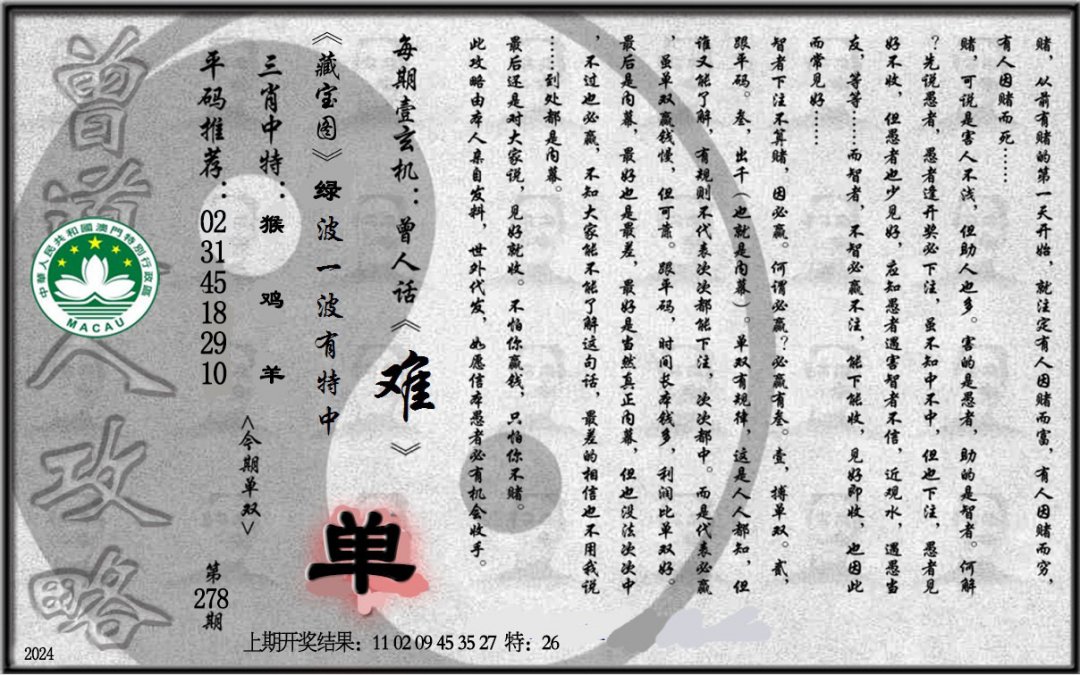 赌，从前有赌的第一天开始，就注定有人因赌而富，有人因赌而穷，
有人因赌而死……
赌，可说是害人不浅，但助人也多。害的是愚者，助的是智者。何解
？先说愚者，愚者逢开奖必下注，虽不知中不中，但也下注，愚者见
好不收，但愚者也少见好，应知愚者遇害智者不信，近观水，遇愚当
友，等等……而智者，不智必赢不注，能下能收，见好即收，也因此
而常见好……
智者下注不算赌，因必赢。何谓必赢？必赢有叁。壹，搏单双。贰，
跟平码。叁，出千（也就是内幕）。单双有规律，这是人人都知，但
谁又能了解，有规则不代表次次都能下注，次次都中。而是代表必赢
，虽单双赢钱慢，但可靠。跟平码，时间长本钱多，利润比单双好。
最后是内幕，最好也是最差，最好是当然真正内幕，但也没法次次中
，不过也必赢，不知大家能不能了解这句话，最差的相信也不用我说
……到处都是内幕。
最后还是对大家说，见好就收。不怕你赢钱，只怕你不赌。
此攻略由本人亲自发料，世外代发，如愿信本愚者必有机会收手。
每期壹玄机：曾人话《难》
《藏宝图》绿波一波有特中
单
三肖中特：猴 鸡 羊
<今期单双>
平码推荐：02 31 45 18 29 10
第278期
曾道人攻略
中華人民共和國澳門特別行政區
MACAU
上期开奖结果：11 02 09 45 35 27 特：26
2024